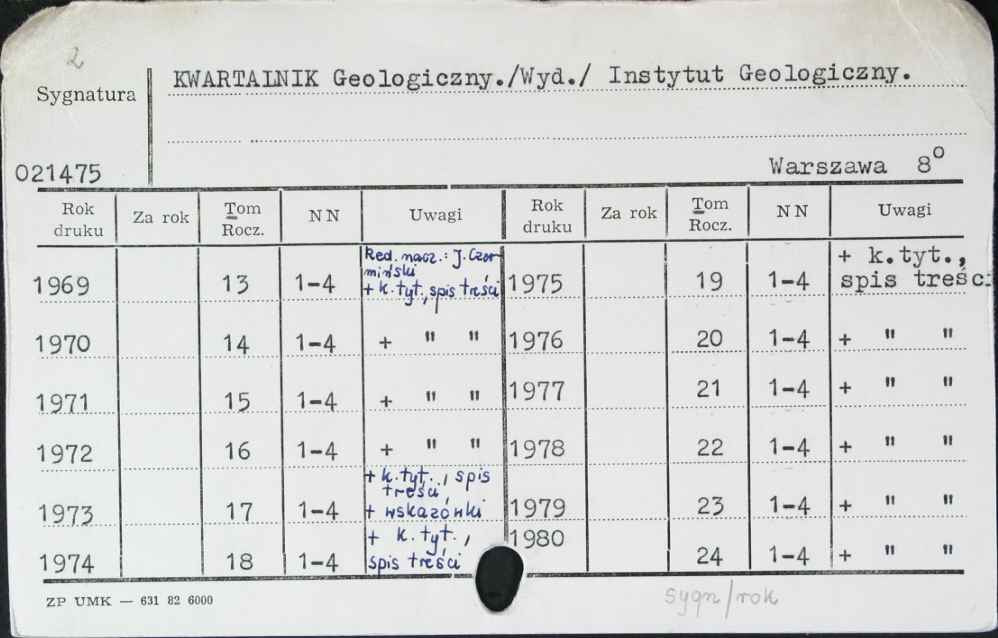 2
KWARTALNIK Geologiczny./Wyd./ Instytut Geologiczny.
Sygnatura
021475
Warszawa 8⁰
Rok druku Za rok Tom Rocz. NN Uwagi Rok druku Za rok Tom Rocz. NN Uwagi
1969 13 1-4 Red. nacz.: J. Czermiński + k. tyt., spis treści 1975 19 1-4 + k.tyt., spis treści
1970 14 1-4 + " " 1976 20 1-4 + " "
1971 15 1-4 + " " 1977 21 1-4 + " "
1972 16 1-4 + " " 1978 22 1-4 + " "
1973 17 1-4 + k. tyt., spis treści, + wskazówki 1979 23 1-4 + " "
1974 18 1-4 + k. tyt., spis treści 1980 24 1-4 + " "
ZP UMK — 631 82 6000
sygn/rok